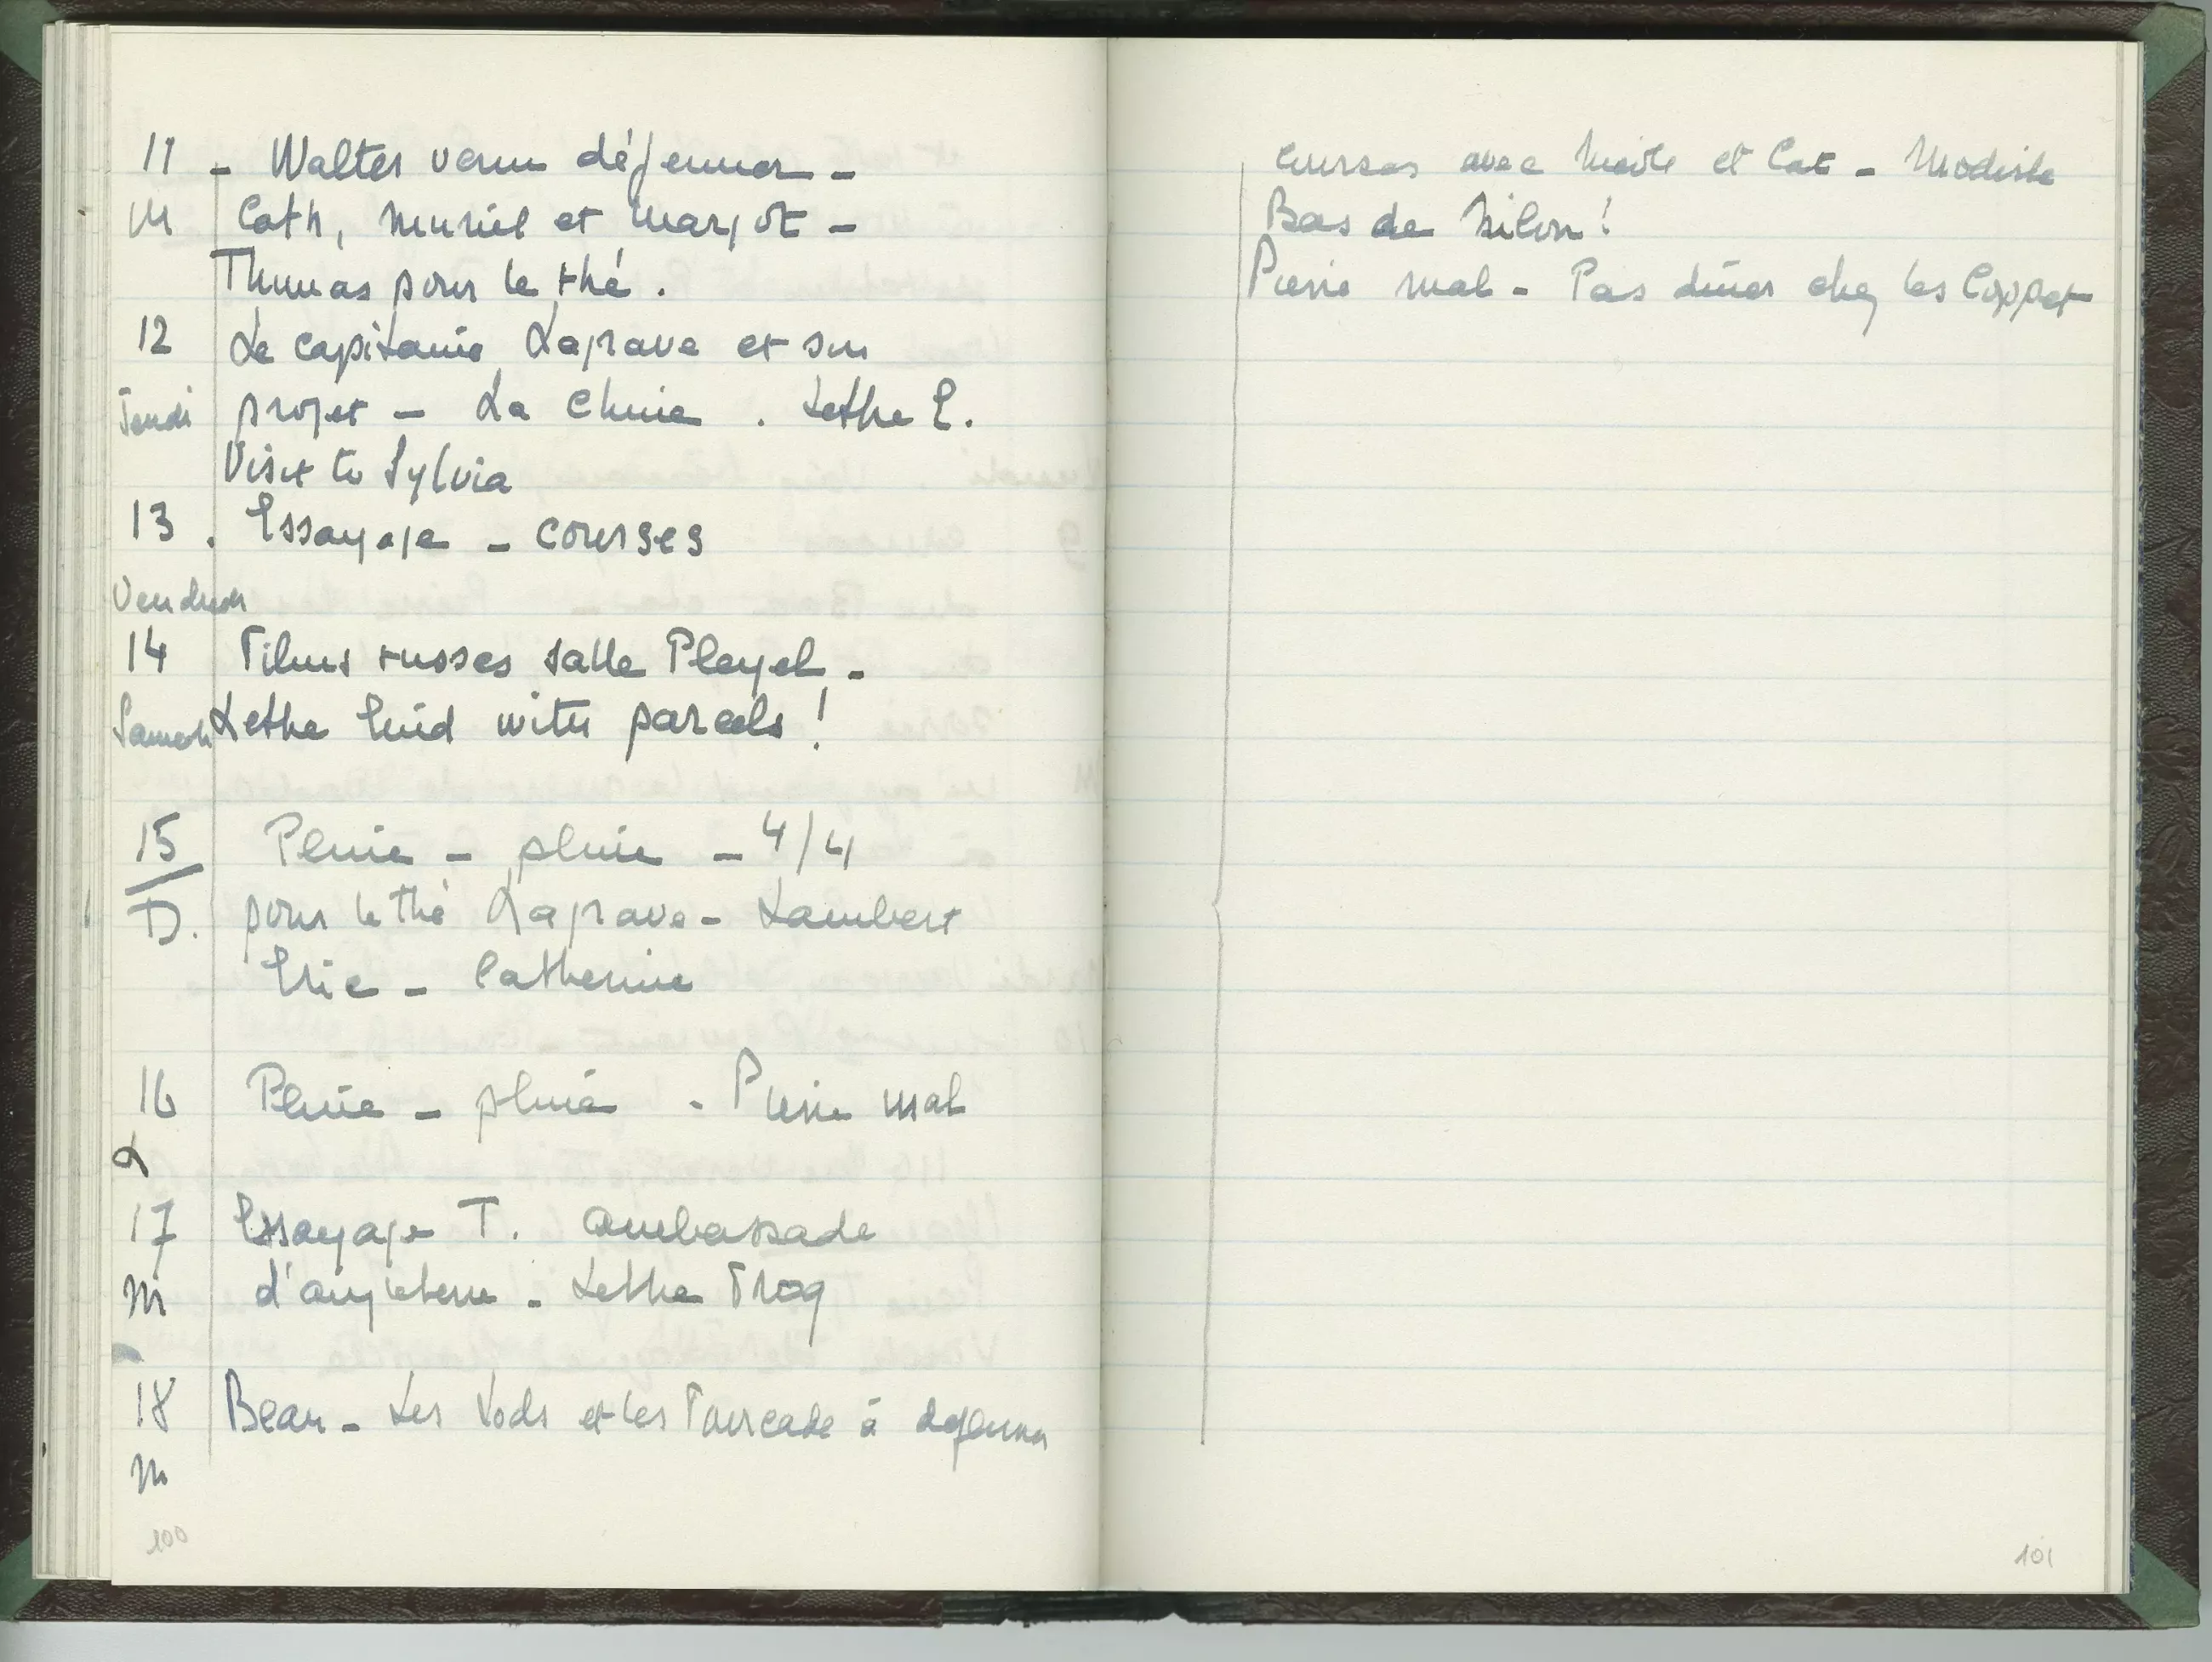 11 - Walter venu déjeuner -
M Cath, Muriel et Margot -
Thomas pour le thé.
12 Le capitaine Lagrave et son
Jeudi projet - La Chine. Lettre E.
Visit to Sylvia
13. Essayage - courses
Vendredi
14 Films russes salle Pleyel -
Samedi Lettre Enid with parcels!
15 Pluie - pluie - 4/4
D. pour le thé Lagrave - Lambert
Eric - Catherine
16 Pluie - pluie - Pierre mal
L
17 Essayage T. ambassade
M d'angleterre - Lettre Frog
18 Beau - Les Vods et les Fourcade à déjeuner
M
100
courses avec et Cat - Modiste
Bas de Nilon!
Pierre mal - Pas dîner chez les Coppet
101